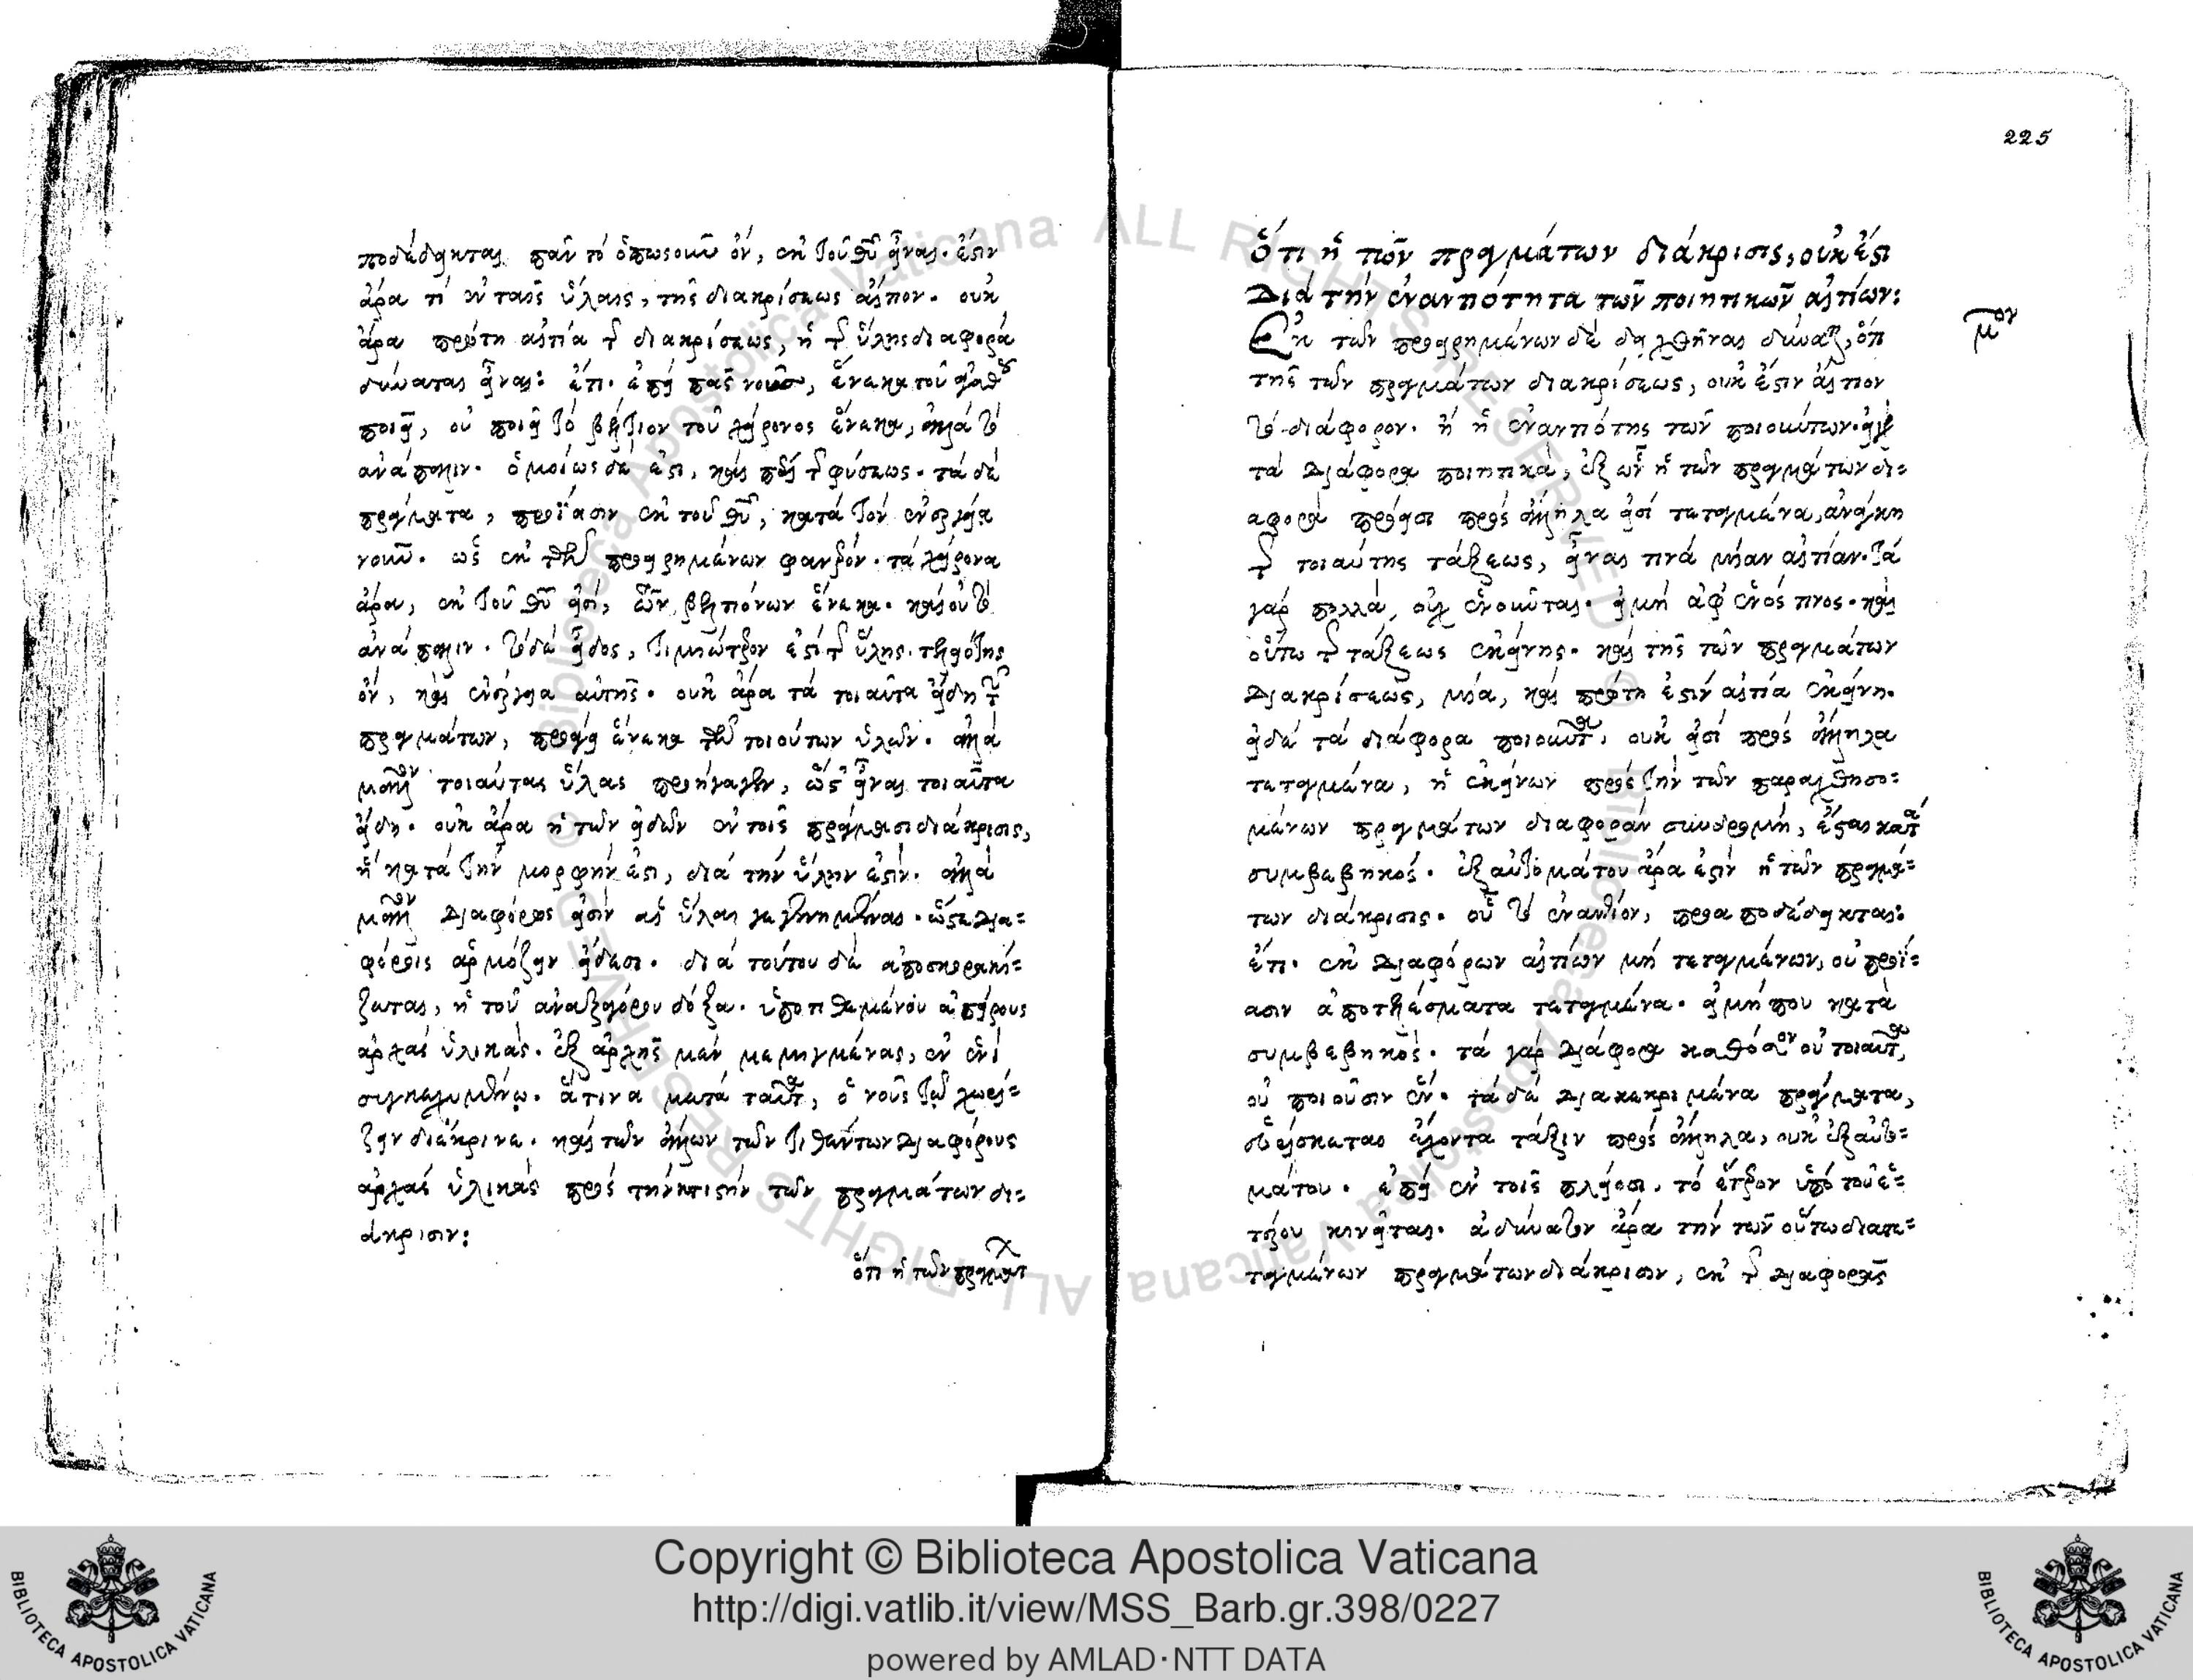 ποδέδεικται πᾶν τὸ ὁπωσοῦν ὄν, ἐκ τοῦ θῦ εἶναι. ἔστιν
ἄρα τί ἐν ταῖς ὕλαις, τῆς διακρίσεως αἴτιον. οὐκ
ἄρα πρώτη αἰτία τῆς διακρίσεως, ἡ τῆς ὕλης διαφορά
δύναται εἶναι: ἔτι. ἐπεὶ πᾶς νοῦς, ἕνεκα τοῦ ἀγαθοῦ
ποιεῖ, οὐ ποιεῖ τὸ βέλτιον τοῦ χείρονος ἕνεκα, ἀλλὰ τὸ
ἀνάπαλιν. ὁμοίως δέ ἐστι, καὶ περὶ τῆς φύσεως. τὰ δὲ
πράγματα, προΐασιν ἐκ τοῦ θῦ, κατὰ τὸν ἐνεργείᾳ
νοῦν. ὡς ἐκ τῶν προειρημένων φανερόν. τὰ χείρονα
ἄρα, ἐκ τοῦ θῦ εἰσί, τῶν βελτιόνων ἕνεκα. καὶ οὐ τὸ
ἀνάπαλιν. τὸ δὲ εἶδος, τιμιώτερόν ἐστι τῆς ὕλης. τελειότης
ὄν, καὶ ἐνέργεια αὐτῆς. οὐκ ἄρα τὰ τοιαῦτα εἴδη τῶν
πραγμάτων, προάγει ἕνεκα τῶν τοιούτων ὑλῶν. ἀλλὰ
μᾶλλον τοιαύτας ὕλας προήγαγεν, ὥστ' εἶναι τοιαῦτα
εἴδη. οὐκ ἄρα ἡ τῶν εἰδῶν ἐν τοῖς πράγμασι διάκρισις,
ἣ κατὰ τὴν μορφήν ἐστι, διὰ τὴν ὕλην ἐστίν. ἀλλὰ
μᾶλλον διάφοροι εἰσὶν αἱ ὕλαι γεγεννημέναι. ὥστε δια=
φόροις ἁρμόζειν εἴδεσι. διὰ τούτου δὲ ἀποσκορακί=
ζεται, ἡ τοῦ ἀναξαγόρου δόξα. ὑποτιθεμένου ἀπείρους
ἀρχὰς ὑλικάς. ἐξ ἀρχῆς μὲν μεμιγμένας, ἐν ἑνὶ
συγκεχυμένῳ. ἅτινα μετὰ ταῦτα, ὁ νοῦς τῷ χωρί=
ζειν διέκρινε. καὶ τῶν ἄλλων τῶν τιθέντων διαφόρους
ἀρχὰς ὑλικὰς πρὸς τὴν κτιστὴν τῶν πραγμάτων δι=
άκρισιν:
ὅτι ἡ τῶν πραγμάτ
225
Ὅτι ἡ τῶν πραγμάτων διάκρισις, οὐκ ἔστι
Διὰ τὴν ἐναντιότητα τῶν ποιητικῶν αἰτίων:
Ἐκ τῶν προειρημένων δὲ δειχθῆναι δύναται, ὅτι
τῆς τῶν πραγμάτων διακρίσεως, οὐκ ἔστιν αἴτιον
τὸ διάφορον. ἢ ἡ ἐναντιότης τῶν ποιούντων. εἰ γὰρ
τὰ διάφορα ποιητικὰ, ἐξ ὧν ἡ τῶν πραγμάτων δι=
αφορὰ πρόεισι πρὸς ἄλληλα εἰσὶ τεταγμένα, ἀνάγκη
τῆς τοιαύτης τάξεως, εἶναι τινὰ μίαν αἰτίαν. τὰ
γὰρ πολλὰ, οὐχ ἑνοῦνται. εἰ μὴ ἀφ' ἑνός τινος. καὶ
οὕτω τῆς τάξεως ἐκείνης. καὶ τῆς τῶν πραγμάτων
Διακρίσεως, μία, καὶ πρώτη ἐστὶν αἰτία ἐκείνη.
εἰ δὲ τὰ διάφορα ποιοῦντα, οὐκ εἰσὶ πρὸς ἄλληλα
τεταγμένα, ἡ ἐκείνων πρὸς τὴν τῶν παραχθησο=
μένων πραγμάτων διαφορὰν συνδρομὴ, ἔσται κατὰ
συμβεβηκός. ἐξ αὐτομάτου ἄρα ἐστὶν ἡ τῶν πραγμά=
των διάκρισις. οὗ τὸ ἐναντίον, προαποδέδεικται:
ἔτι. ἐκ διαφόρων αἰτίων μὴ τεταγμένων, οὐ προΐ=
ασιν ἀποτελέσματα τεταγμένα. εἰ μή που κατὰ
συμβεβηκός. τὰ γὰρ διάφορα καθόσον οὐ τοιαῦτα,
οὐ ποιοῦσιν ἕν. τὰ δὲ διακεκριμένα πράγματα,
εὑρίσκεται ἔχοντα τάξιν πρὸς ἄλληλα, οὐκ ἐξ αὐτο=
μάτου. ἐπεὶ ἐν τοῖς πλείοσι, τὸ ἕτερον ὑπὸ τοῦ ἑ=
τέρου κινεῖται. ἀδύνατον ἄρα τὴν τῶν οὕτω διατε=
ταγμένων πραγμάτων διάκρισιν, ἐκ τῆς διαφορᾶς
Copyright © Biblioteca Apostolica Vaticana
http://digi.vatlib.it/view/MSS_Barb.gr.398/0227
powered by AMLAD·NTT DATA
BIBLIOTECA APOSTOLICA VATICANA
BIBLIOTECA APOSTOLICA VATICANA